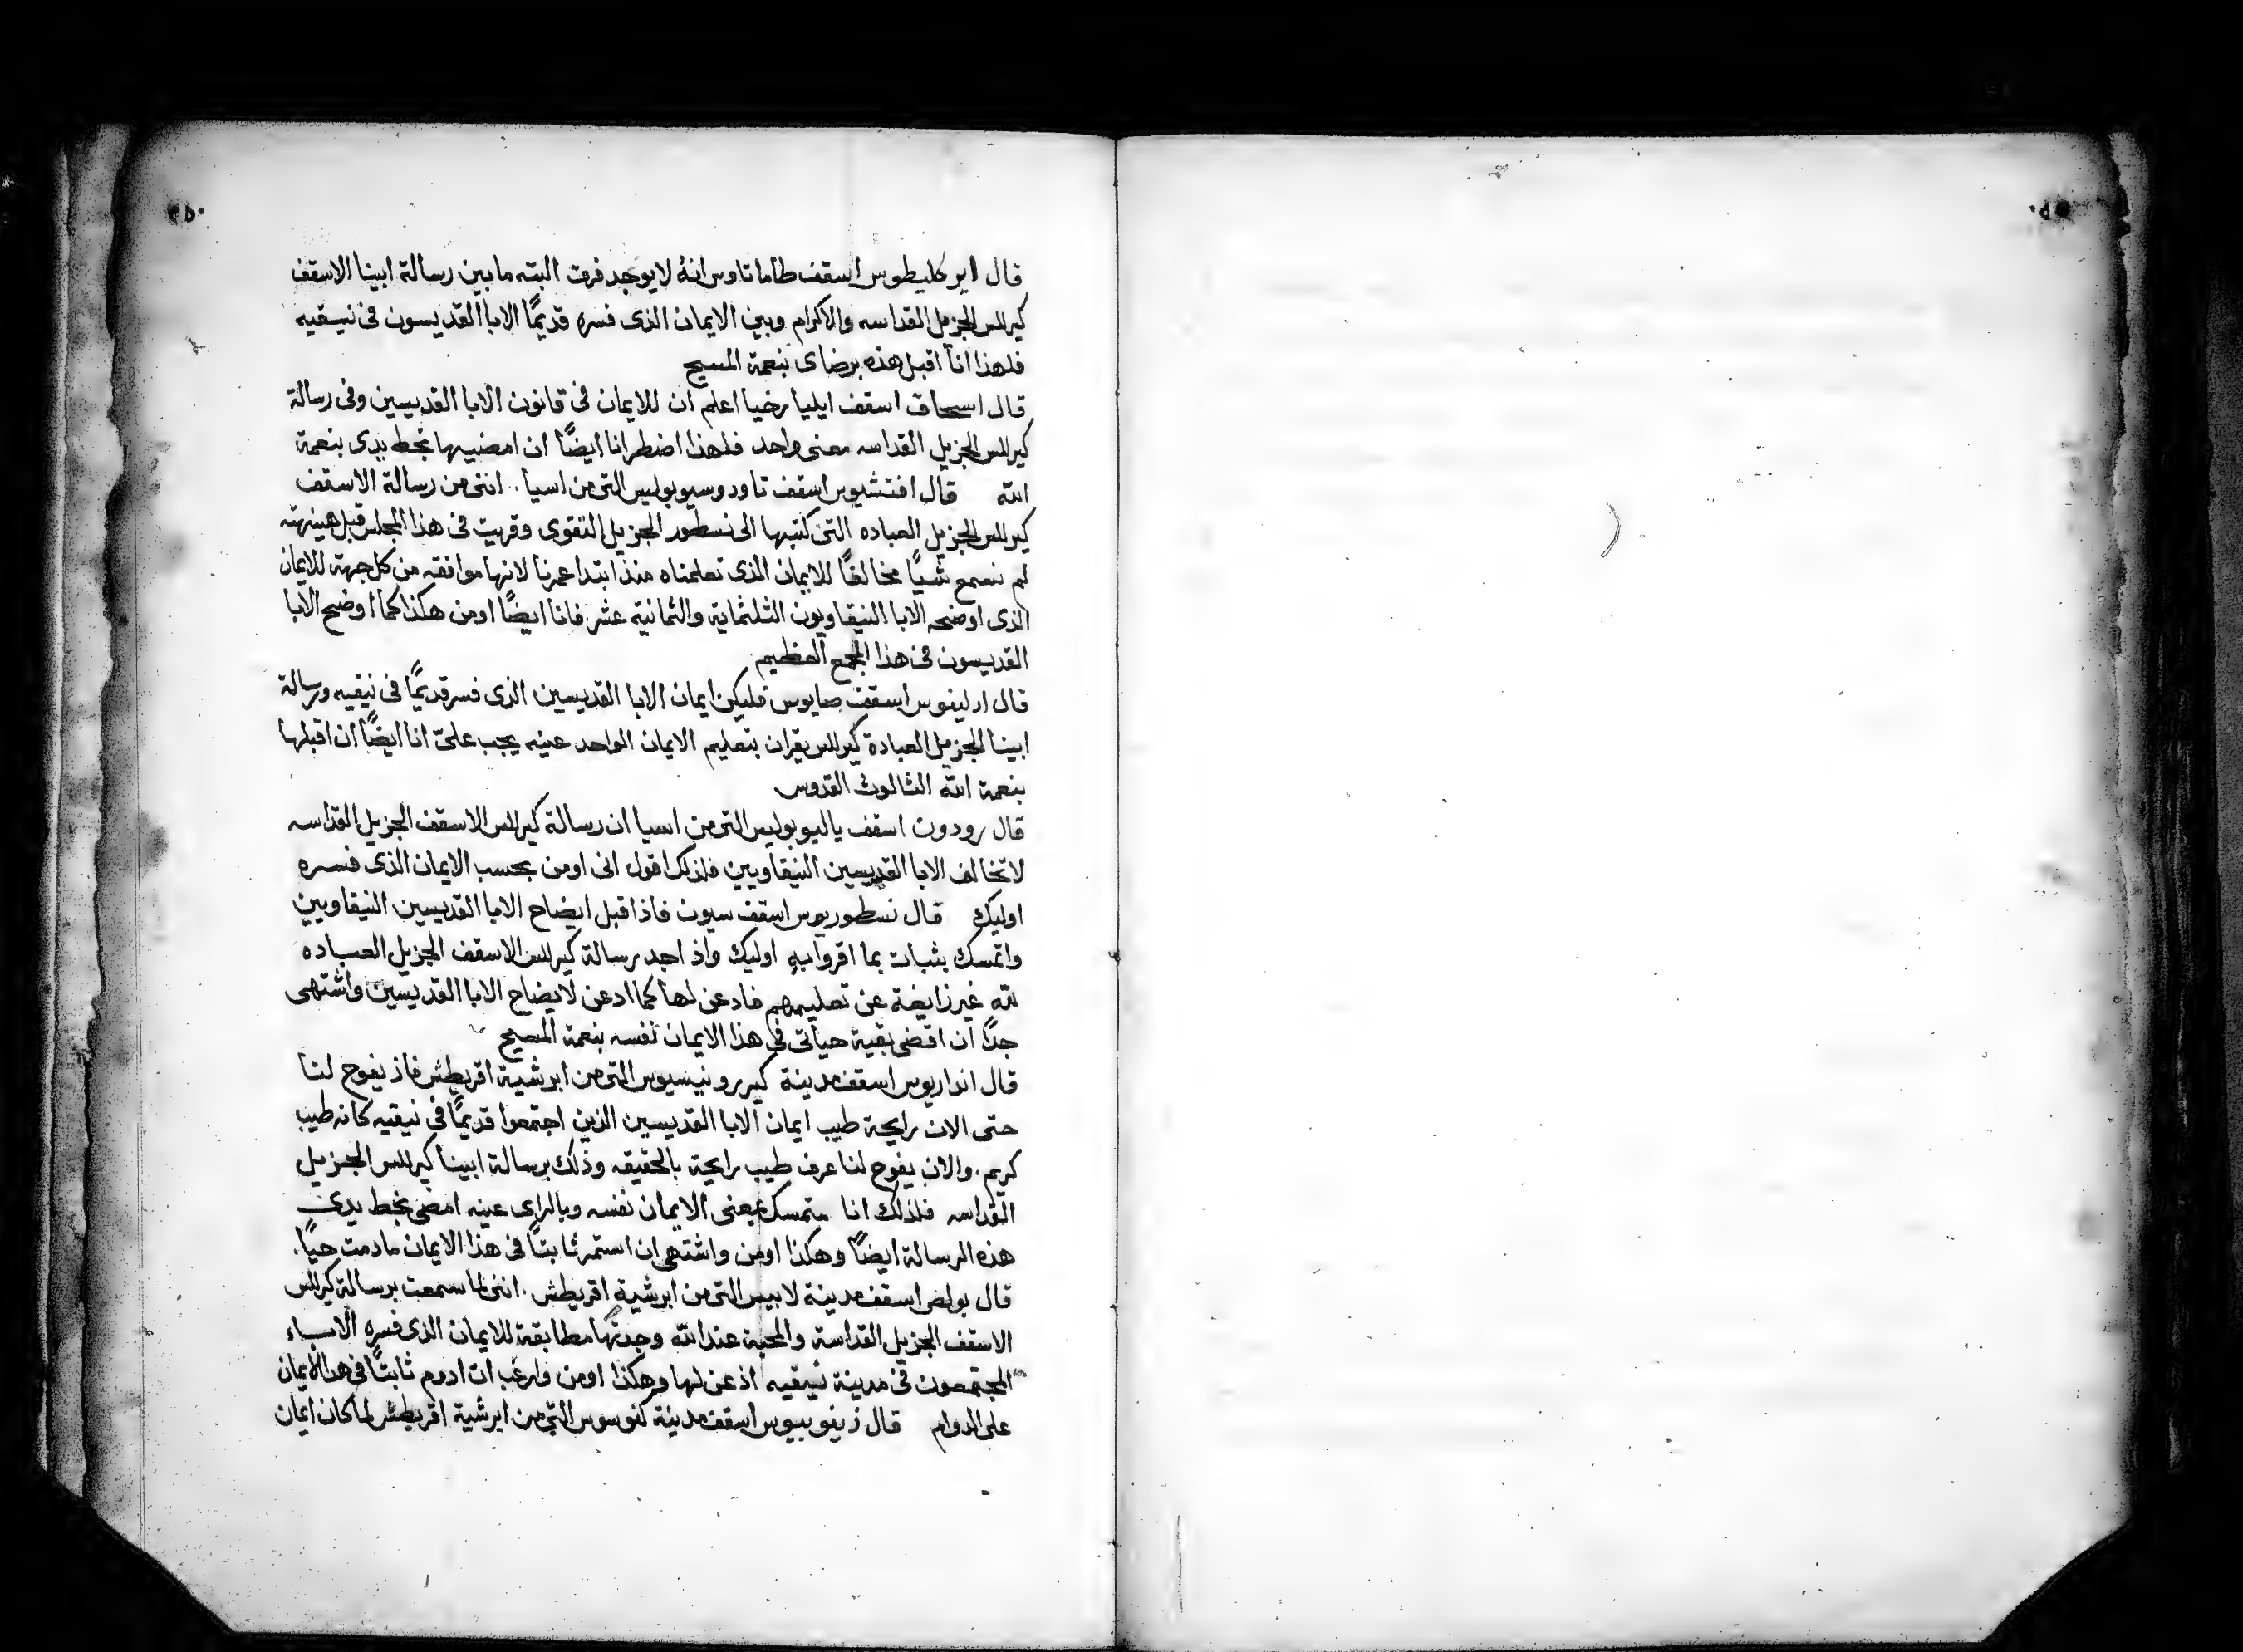 ٢٥٠
قال ايركليطوس اسقف طاماتاوس انهُ لا يوجد فرق البته ما بين رسالة ابينا الاسقف
كيرللس الجزيل القداسه والاكرام وبين الايمان الذى فسره قديمًا الابا القديسون فى نيقيه
فلهذا انا اقبل هذه برضاى بنعمة المسيح
قال اسحاق اسقف ايليارخيا اعلم ان للايمان فى قانون الابا القديسين وفى رسالة
كيرللس الجزيل القداسه معنى واحد فلهذا اضطر انا ايضًا ان امضيها بخط يدى بنعمة
الله قال افتشيوس اسقف تاودوسيوبوليس التى من اسيا. اننى من رسالة الاسقف
كيرللس الجزيل العباده التى كتبها الى نسطور الجزيل التقوى وقريت فى هذا المجلس قبل هنيهته
لم نسمع شيًا مخالفًا للايمان الذى تعلمناه منذ ابتدا عمرنا لانها موافقه من كل جهة للايمان
الذى اوضحه الابا النيقاويون الثلثماية والثمانية عشر فانا ايضًا اومن هكذا كما اوضح الابا
القديسون فى هذا المجمع العظيم
قال ادلينوس اسقف صايوس فليكن ايمان الابا القديسين الذى فسر قديمًا فى نيقيه ورسالة
ابينا الجزيل العبادة كيرللس يقران بتعليم الايمان الواحد عينه يجب علىّ انا ايضًا ان اقبلها
بنعمة الله الثالوث القدوس
قال رودون اسقف ياليوبوليس التى من اسيا ان رسالة كيرللس الاسقف الجزيل القداسه
لا تخالف الابا القديسين النيقاويين فلذلك اقول انى اومن بحسب الايمان الذى فسره
اوليك قال نسطوريوس اسقف سيون فاذ اقبل ايضاح الابا القديسين النيقاويين
واتمسك بثبات بما اقروا به اوليك واذ اجد رسالة كيرللس الاسقف الجزيل العباده
لله غير زايغة عن تعليمهم فادعن لها كما ادعن لايضاح الابا القديسين واشتهى
جدًا ان اقضى بقية حياتى فى هذا الايمان نفسه بنعمة المسيح
قال انداريوس اسقف مدينة كيررونيسيوس التى من ابرشية اقريطش فاذ يفوح لنا
حتى الان رايحة طيب ايمان الابا القديسين الذين اجتمعوا قديمًا فى نيقيه كانه طيب
كريم. والان يفوح لنا عرف طيب رايحة بالحقيقه وذلك برسالة ابينا كيرللس الجزيل
القداسه فلذلك انا متمسك بمعنى الايمان نفسه وبالراى عينه امضى بخط يدى
هذه الرسالة ايضًا وهكذا اومن واشتهى ان استمر ثابتًا فى هذا الايمان ما دمت حيًا.
قال بولص اسقف مدينة لابيس التى من ابرشية اقريطش. اننى لما سمعت برسالة كيرللس
الاسقف الجزيل القداسة والمحبة عند الله وجدتها مطابقة للايمان الذى فسره الاباء
المجتمعون فى مدينة نيقيه اذعن لها وهكذا اومن وارغب ان ادوم ثابتًا فى هذا الايمان
على الدوام قال زينوبيوس اسقف مدينة كنوسوس التى من ابرشية اقريطش لما كان ايمان